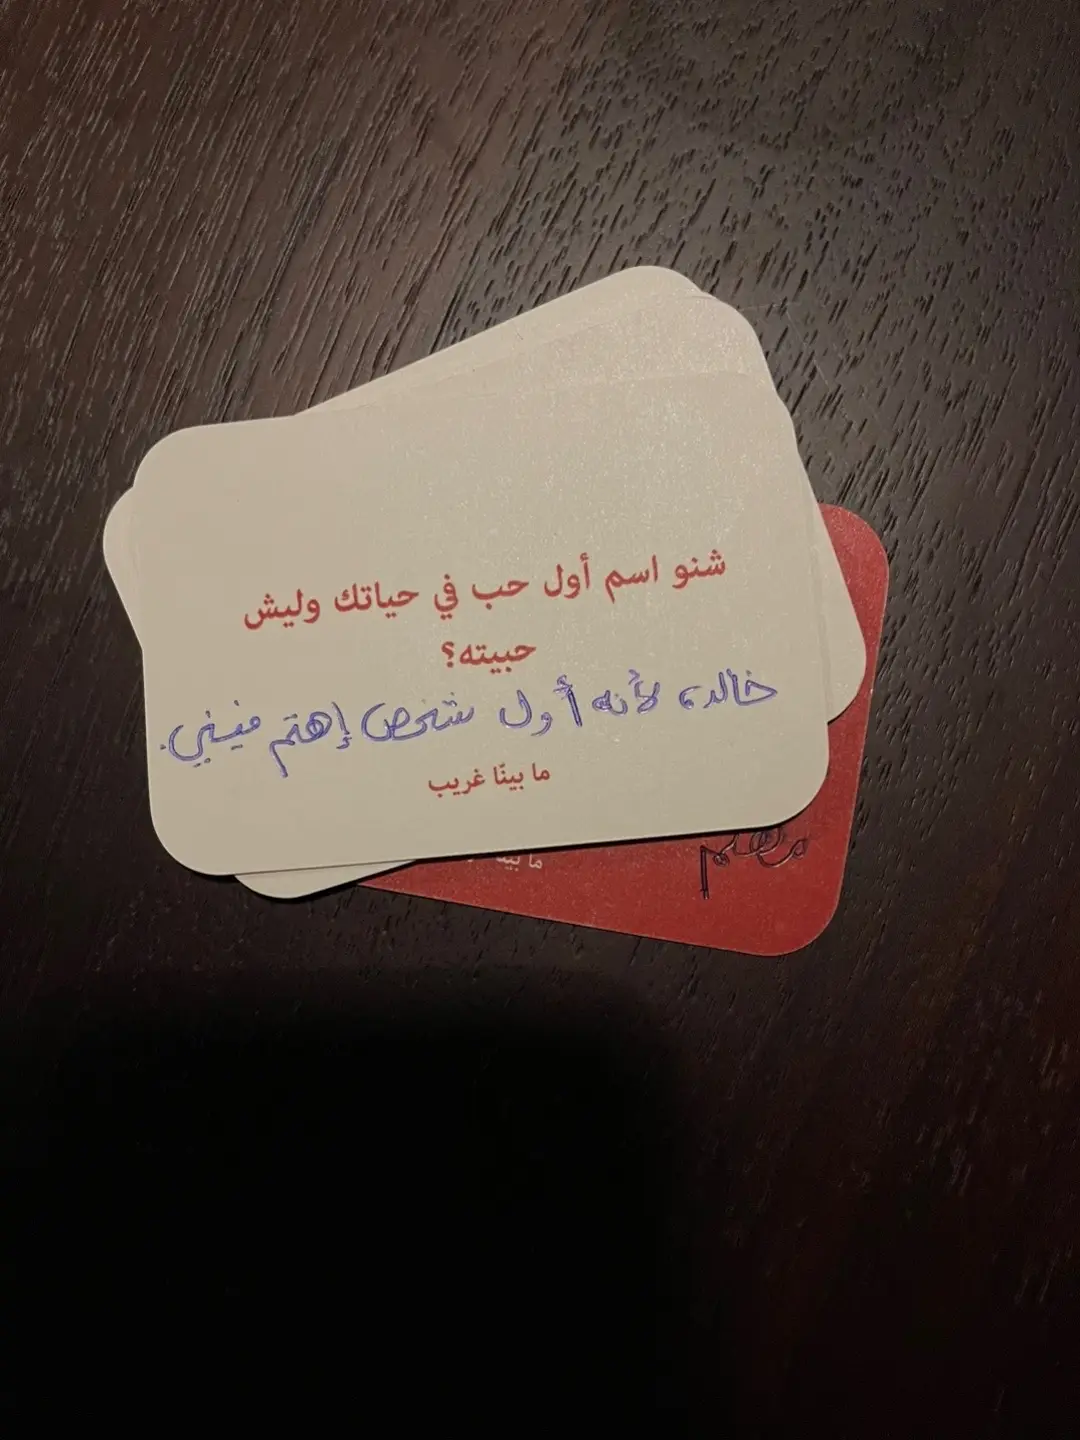 شنو اسم أول حب في حياتك وليش
حبيته؟
خالد، لأنه أول شخص إهتم فيني.
ما بينّا غريب
ما بينّا